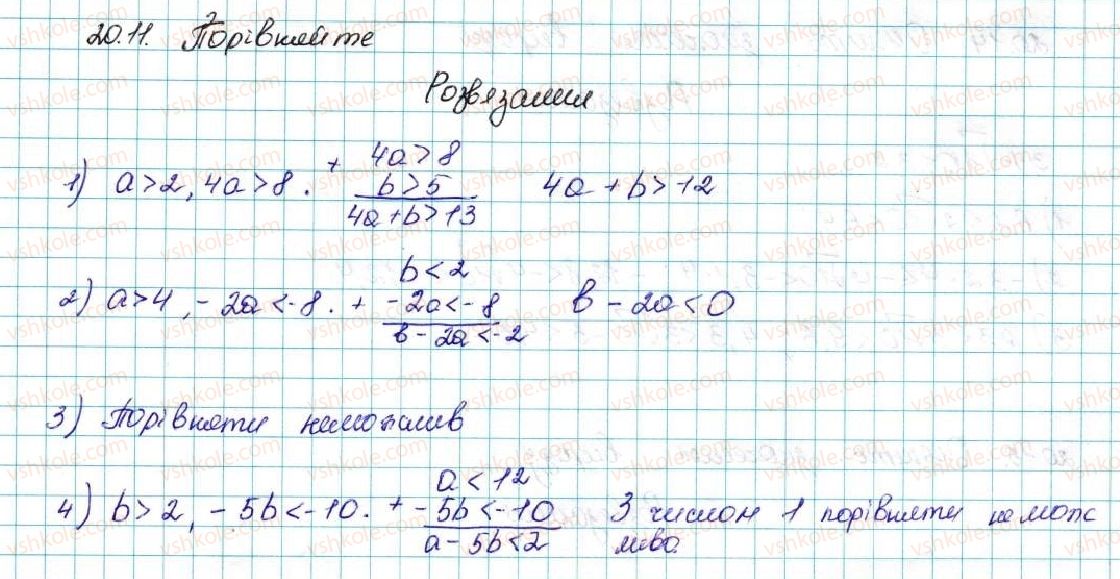 20.11. Порівняйте
Розвязання
1) a>2, 4a>8. + 4a>8
b>5
4a+b>13
4a+b>12
2) a>4, -2a<-8. + b<2
-2a<-8
b-2a<-2
в-2a<0
3) Порівняти неможлив
4) b>2, -5b<-10. + a<12
-5b<-10
a-5b<2
З числом 1 порівняти немож
ливо.